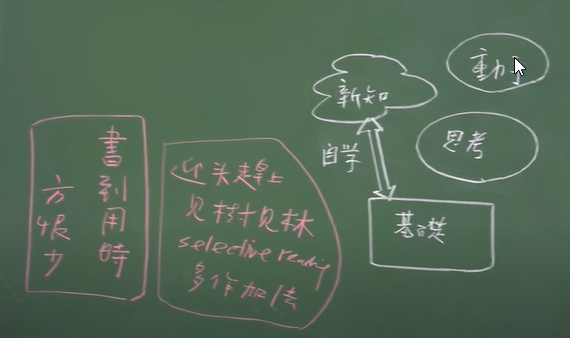 書到用時
方恨少
迎头趕上
见樹见林
selective reading
多作加法
新知
自学
基礎
動手
思考